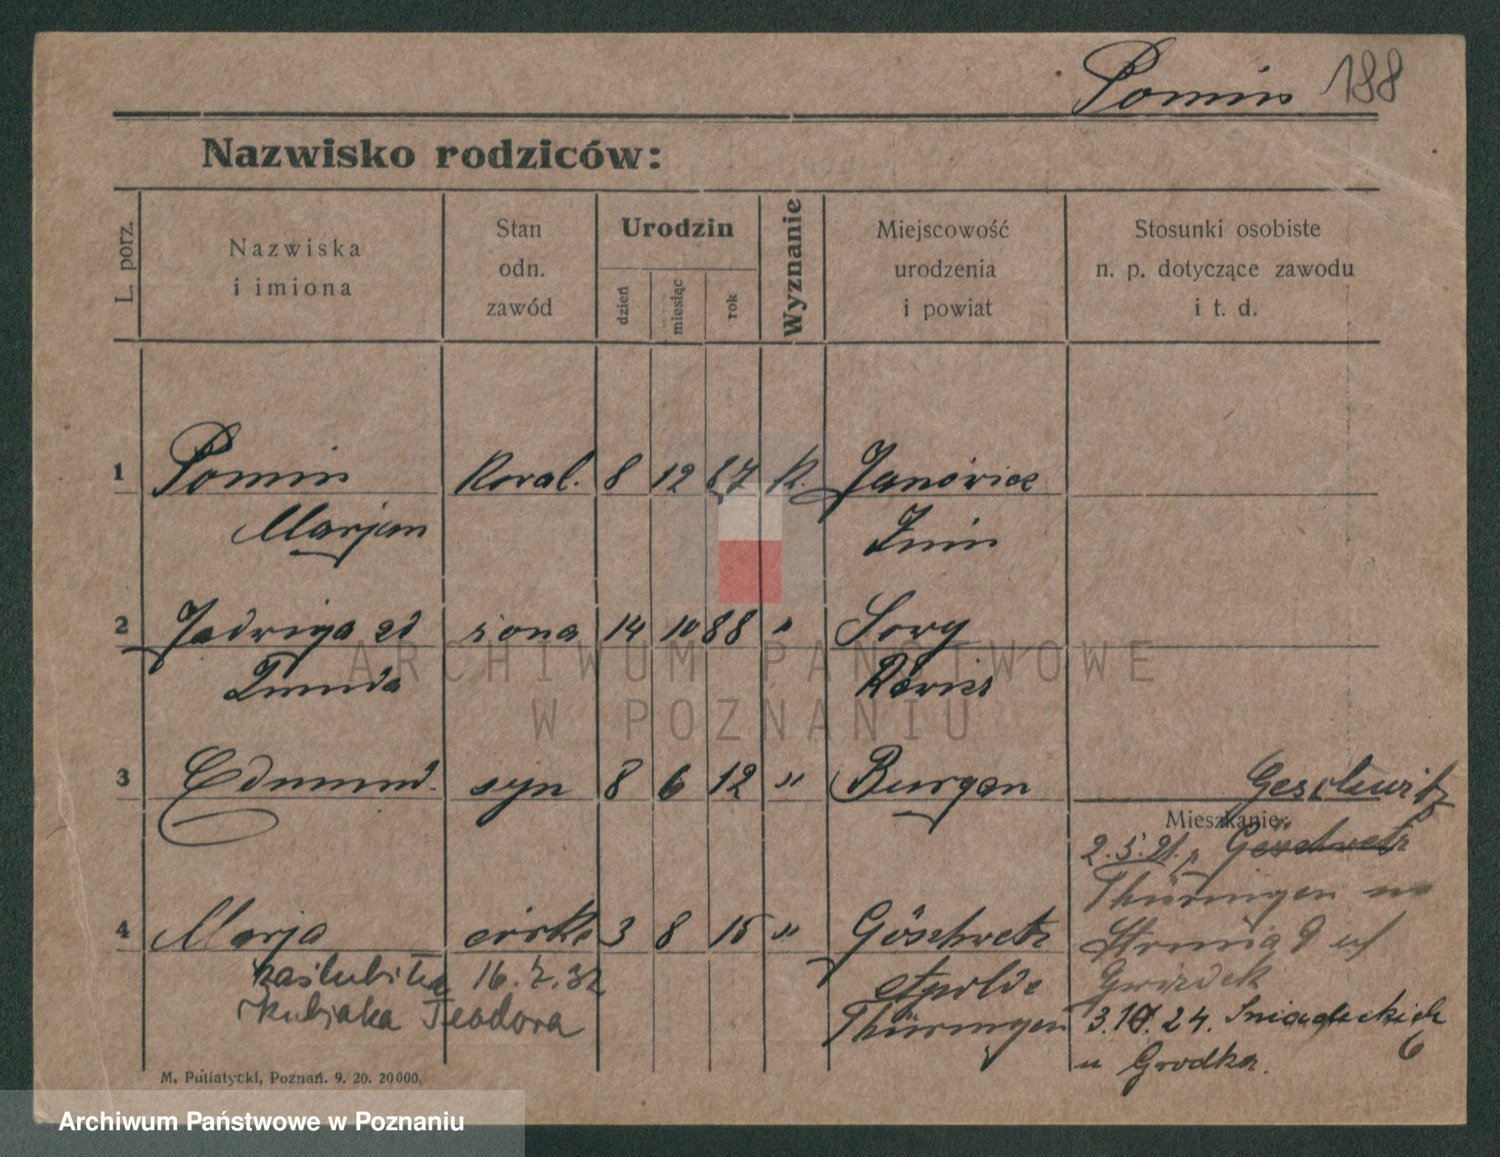 Pomin 188
Nazwisko rodziców:
L. porz.
Nazwiska
i imiona
Stan
odn.
zawód
Urodzin
dzień
miesiąc
rok
Wyznanie
Miejscowość
urodzenia
i powiat
Stosunki osobiste
n. p. dotyczące zawodu
i t. d.
1 Pomin Koval. 8 12 87 k.
Marjan Żnin
2 Jadwiga zd żona 14 10 88 "
ARCHIWUM PAŃSTWOWE
W POZNANIU
3 Edmund syn 8 6 12 " Burgau
Mieszkanie:
2.5.21. Göschwitz
4 Marja córka 3 8 15 " Göschwitz
Thüringen
zaślubiła 16.7.32
Kubiaka Teodora
Apolda
Thüringen
3.10.24. Sniadeckich
6
u Grodka.
M. Putiatycki, Poznań. 9. 20. 20000.
Archiwum Państwowe w Poznaniu